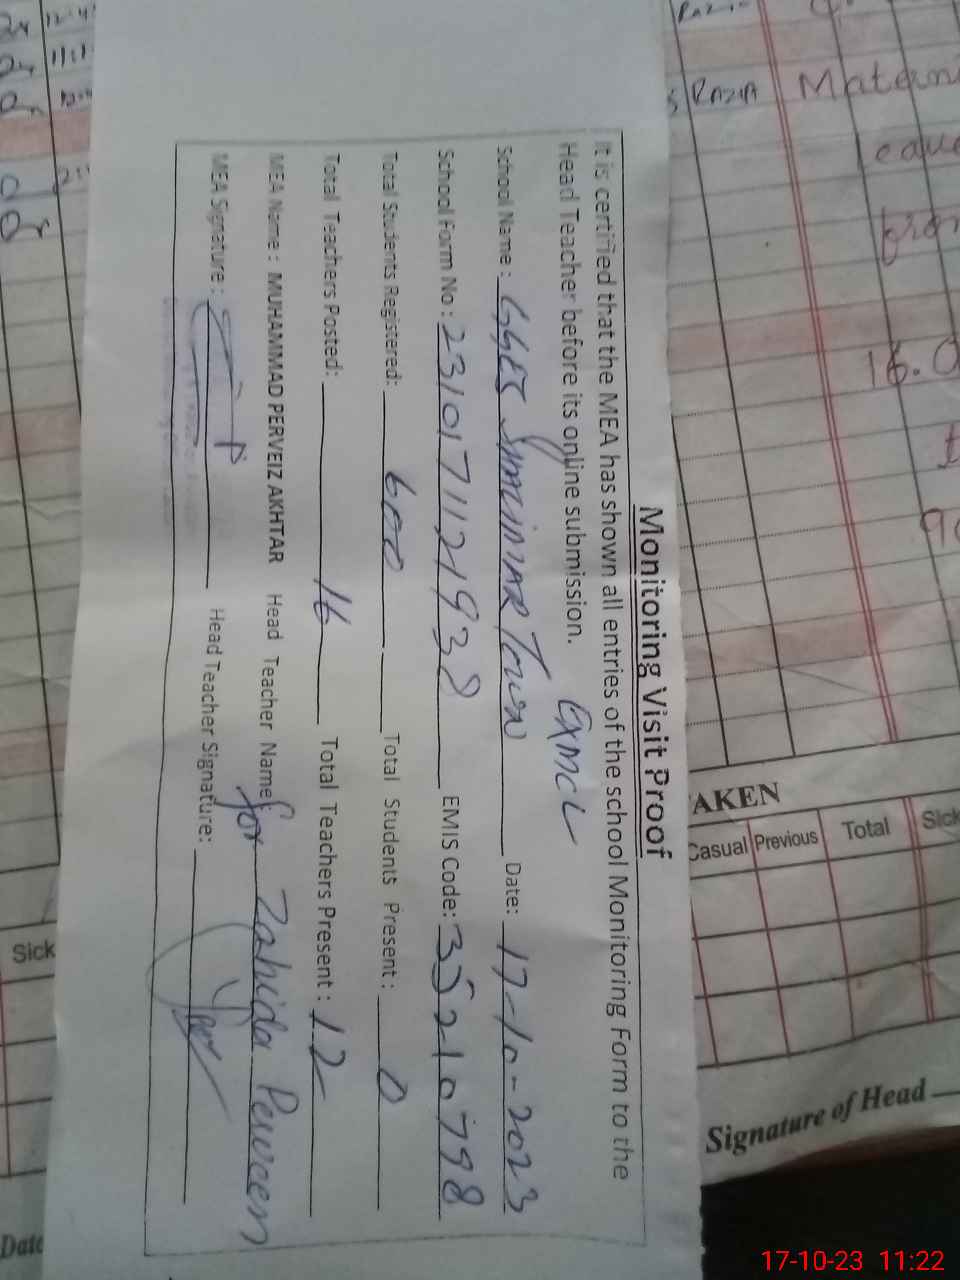 Monitoring Visit Proof
It is certified that the MEA has shown all entries of the school Monitoring Form to the
Head Teacher before its online submission.
GXMCL
School Name : GGES SHALIMAR TOWN Date: 17-10-2023
School Form No : 2310171121938 EMIS Code: 35210798
Total Students Registered: 600 Total Students Present : 0
Total Teachers Posted: 16 Total Teachers Present : 12
MEA Name : MUHAMMAD PERVEIZ AKHTAR Head Teacher Name: for Zahida Perveen
MEA Signature : Head Teacher Signature:
RAZIA
AKEN
Casual Previous Total Sick
Signature of Head
Sick
Date
16.0
17-10-23 11:22